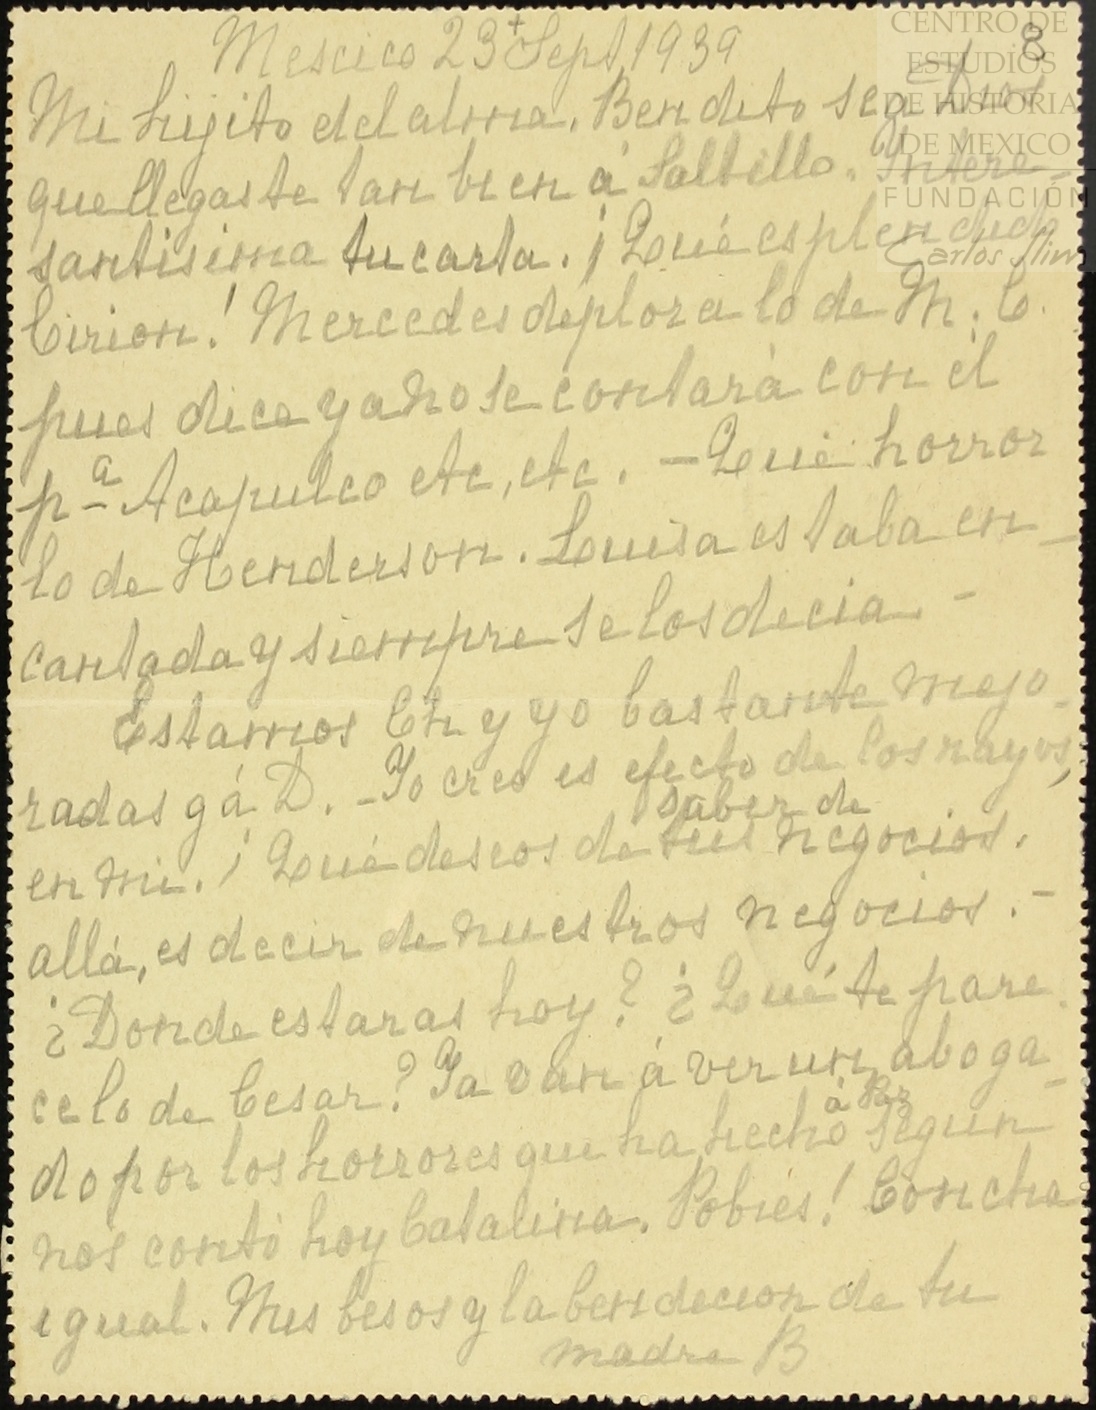 CENTRO DE
ESTUDIOS
DE HISTORIA
DE MEXICO
FUNDACIÓN
Carlos Slim
8
Mexico 23 Sept, 1939
Mi hijito del alma. Bendito sea Dios
que llegaste tan bien á Saltillo. Intere-
santisima tu carta. ¡Qué esplendido
Cirion! Mercedes deplora lo de M. C.
pues dice ya no se contará con él
pª Acapulco etc, etc. - Qué horror
lo de Henderson. Luisa estaba en-
cantada y siempre se los decia. -
Estamos Ch y yo bastante mejo-
radas g á D. - Yo creo es efecto de los rayos,
en mi. ¡Qué deseos de saber de tus negocios.
allá, es decir de nuestros negocios. -
¿Donde estaras hoy? ¿Qué te pare-
ce lo de Cesar? Ya van á ver un aboga-
do por los horrores que ha hecho á Paz segun
nos contó hoy Catalina. Pobres! Concha
igual. Mis besos y la bendicion de tu
madre B